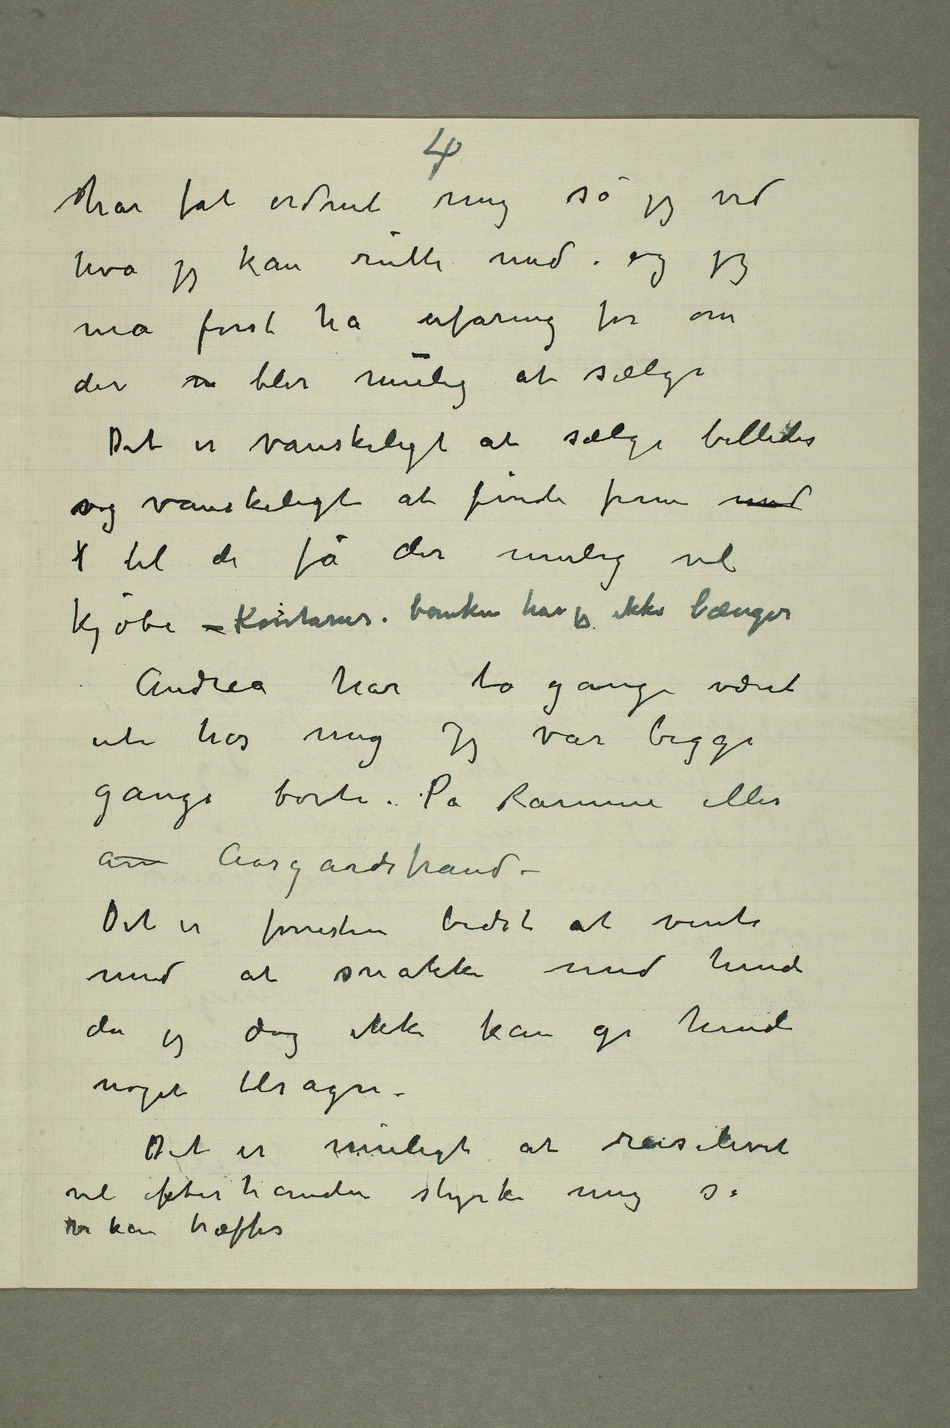 4
har fåt ordnet mig så jeg ved
hva jeg kan rutte med. og jeg
må først ha erfaring for om
der blir mulig at sælge
Det er vanskeligt at sælge billeder
og vanskeligt at finde frem med
til de få der mulig vil
kjøbe – banken har jeg ikke længer
Andrea har to gange været
ute hos mig Jeg var begge
gange borte. På Ramme eller
Aasgaardstrand –
Det er forresten bedst at vente
med at snakke med hende
da jeg dog ikke kan gi hende
noget tilsagn –
Det er muligt at reiselivet
vil efterhånden styrke mig så
vi kan træffes